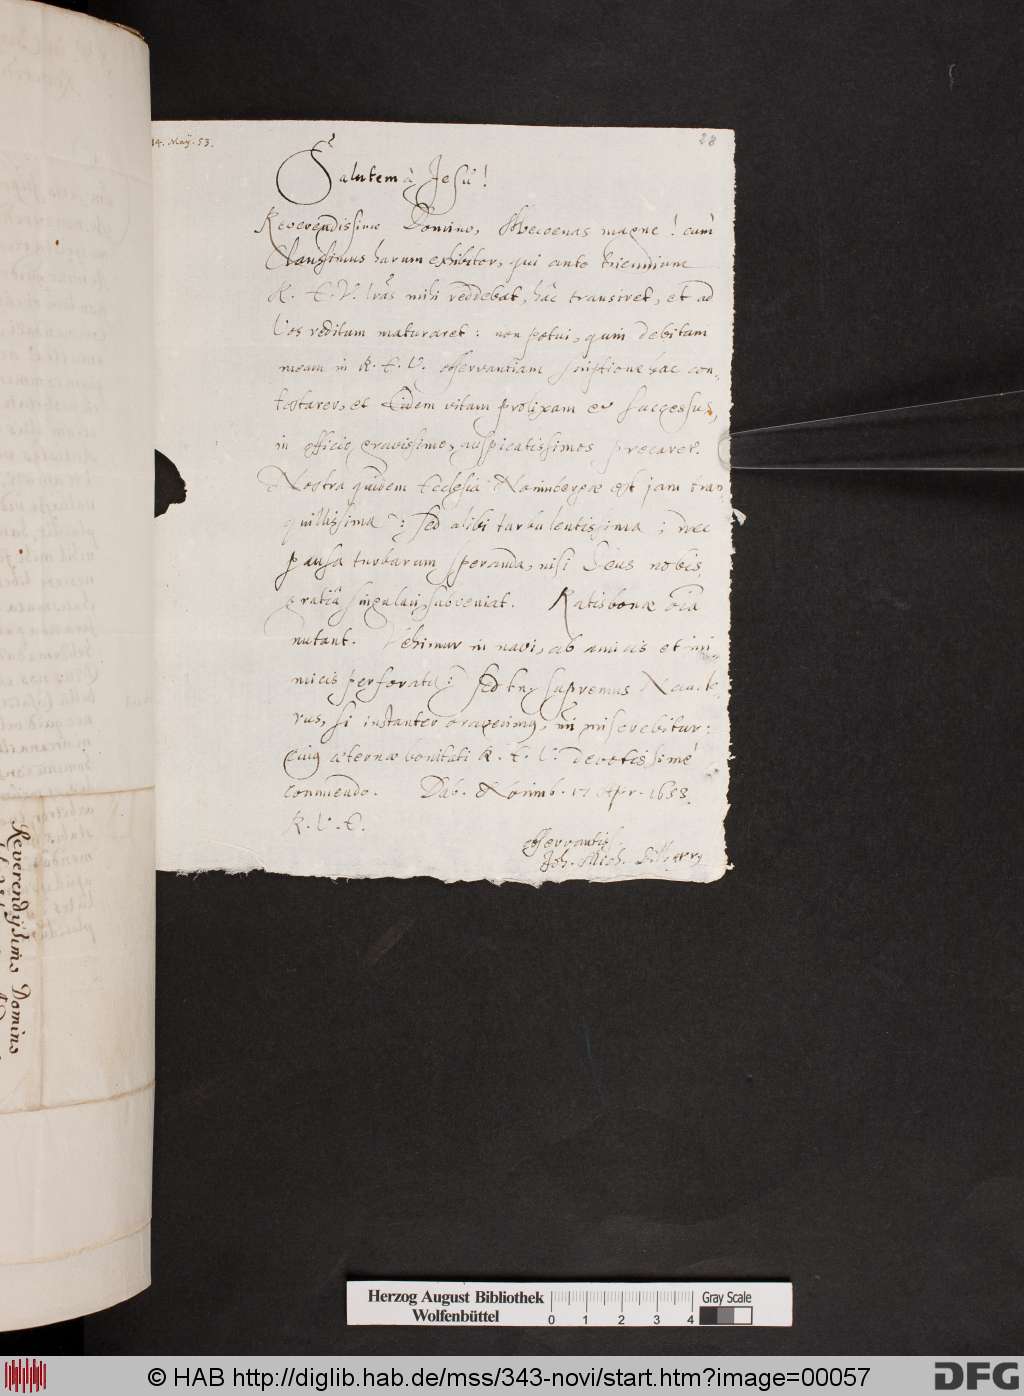 14. Maÿ. 53.
28
Salutem à Jesu!
Reverendissime Domine, Mecoenas magne! cùm
Clarissimus harum exhibitor, qui ante triennium
R. T. V. lrãs mihi reddebat, hâc transiret, et ad
Vos reditum maturaret: non potui, quin debitam
meam in R. T. V. observantiam scriptione hac con-
testarer, et Eidem vitam prolixam et successus,
in officio gravissimo, auspicatissimos precarer.
Nostra quidem Ecclesia Norimbergae est jam tran-
quillissima: sed alibi turbulentissima; nec
pausa turbarum speranda, nisi Deus nobis
gratiâ singulari subveniat. Ratisbonae oia
nutant. Vehimur in navi, ab amicis et ini
micis perforatâ: sed supremus Naucle-
rus, si instanter oraverimus, miserebitur:
Cujus aeternae bonitati R. T. V. devotissimè
commendo. Dab. Norimb. 17 Apr. 1653.
R. V. T.
observantiss.
Joh. Mich. Dilherrus
Reverendissimo Domino
Herzog August Bibliothek
Wolfenbüttel
0 1 2 3 4
Gray Scale
© HAB http://diglib.hab.de/mss/343-novi/start.htm?image=00057
DFG